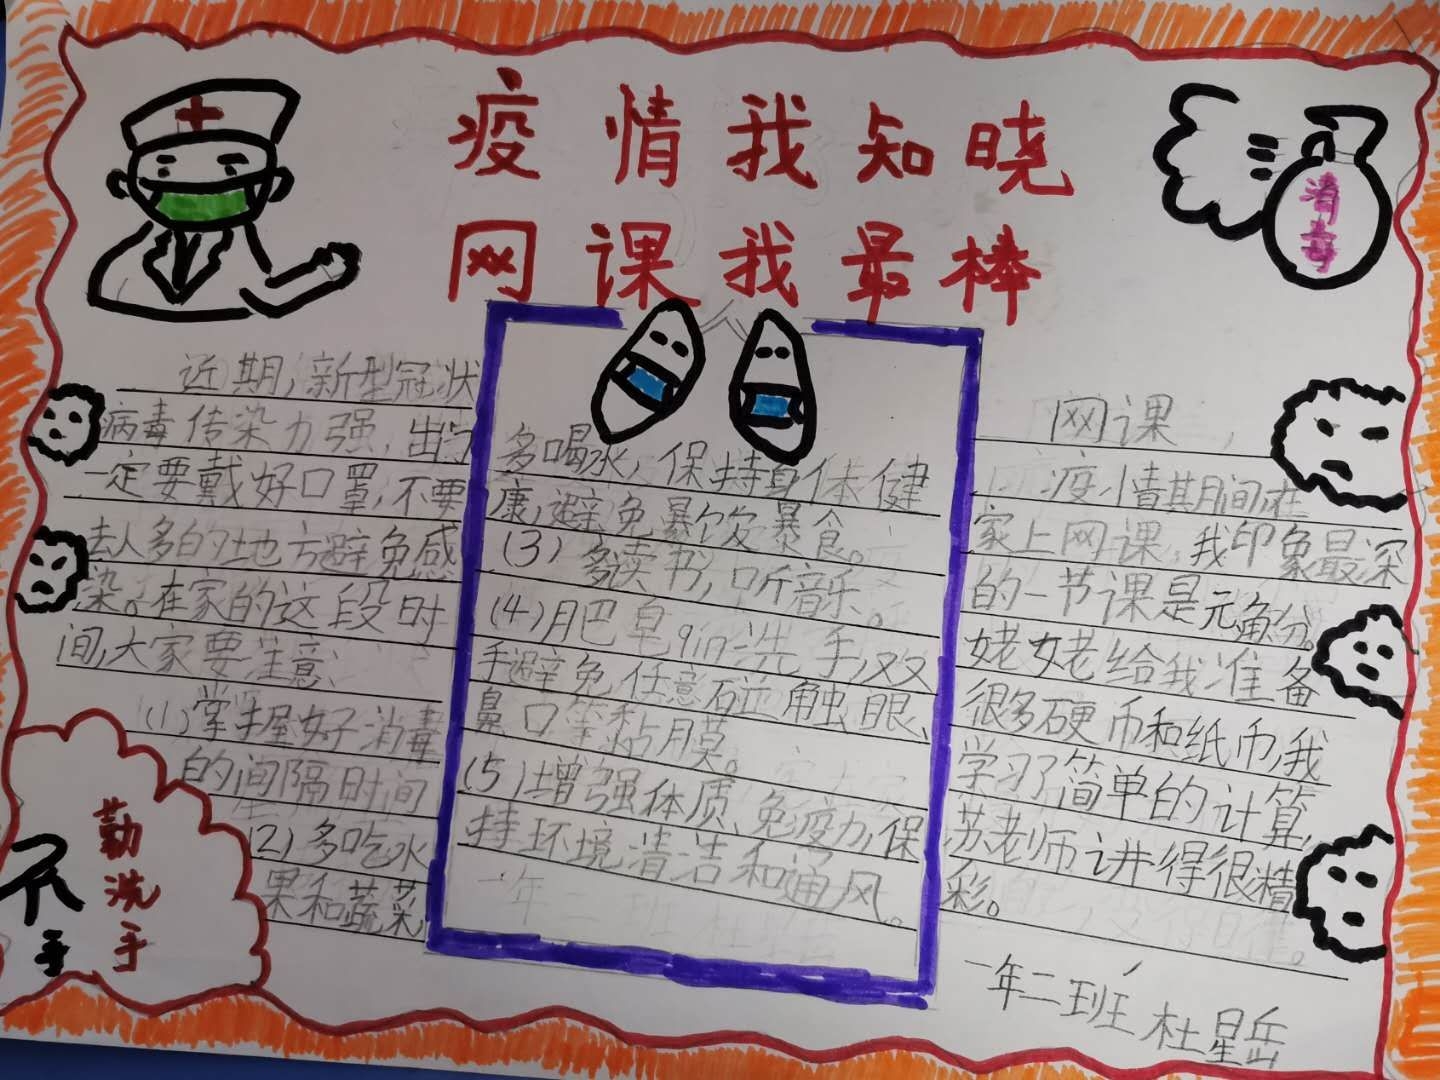 疫情我知晓
网课我最棒
消毒
近期,新型冠状
病毒传染力强,出门
一定要戴好口罩,不要
去人多的地方避免感
染。在家的这段时
间,大家要注意、
(1)掌握好消毒
的间隔时间
(2)多吃水
果和蔬菜,
勤洗手
多喝水,保持身体健
康,避免暴饮暴食。
(3)多读书,听音乐。
(4)肥皂qin洗手,双
手避免任意碰触眼、
鼻口等黏膜。
(5)增强体质、免疫力,保
持环境清洁和通风。
网课,
疫情期间在
家上网课,我印象最深
的一节课是元角分。
姥姥给我准备
很多硬币和纸币我
学习了简单的计算,
苏老师讲得很精
彩。
一年二班 杜星岳